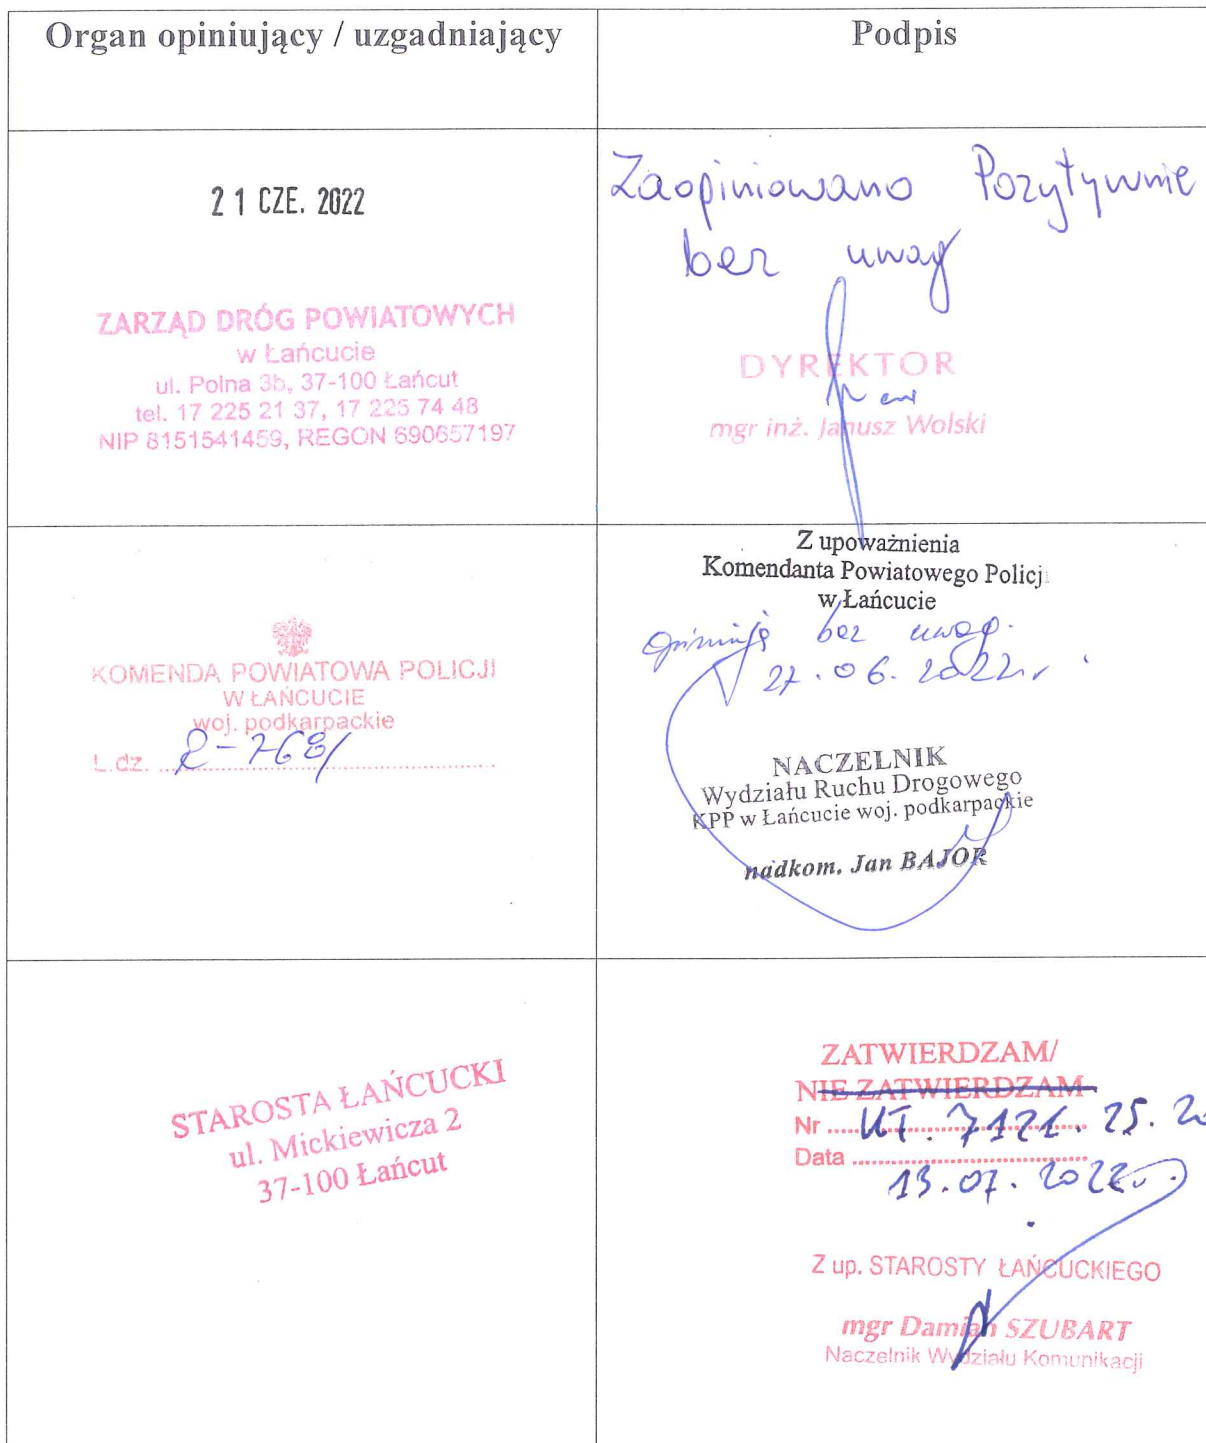 Organ opiniujący / uzgadniający
Podpis
21 CZE. 2022
ZARZĄD DRÓG POWIATOWYCH
w Łańcucie
ul. Polna 3b, 37-100 Łańcut
tel. 17 225 21 37, 17 225 74 48
NIP 8151541459, REGON 690657197
Zaopiniowano Pozytywnie
bez uwag
DYREKTOR
mgr inż. Janusz Wolski
KOMENDA POWIATOWA POLICJI
W ŁAŃCUCIE
woj. podkarpackie
L.dz. R-768/
Z upoważnienia
Komendanta Powiatowego Policji
w Łańcucie
Opiniuję bez uwag.
27.06.2022r.
NACZELNIK
Wydziału Ruchu Drogowego
KPP w Łańcucie woj. podkarpackie
nadkom. Jan BAJOR
STAROSTA ŁAŃCUCKI
ul. Mickiewicza 2
37-100 Łańcut
ZATWIERDZAM/
NIE ZATWIERDZAM
Nr KT. 7121. 25. 20
Data
13.07.2022r.
Z up. STAROSTY ŁAŃCUCKIEGO
mgr Damian SZUBART
Naczelnik Wydziału Komunikacji